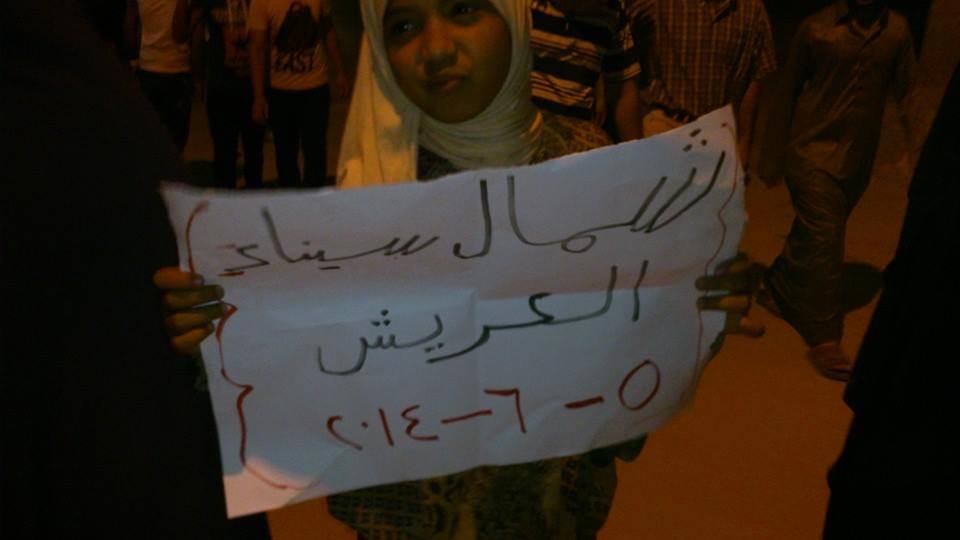 EAST
شمال سيناء
العريش
٥-٦-٢٠١٤